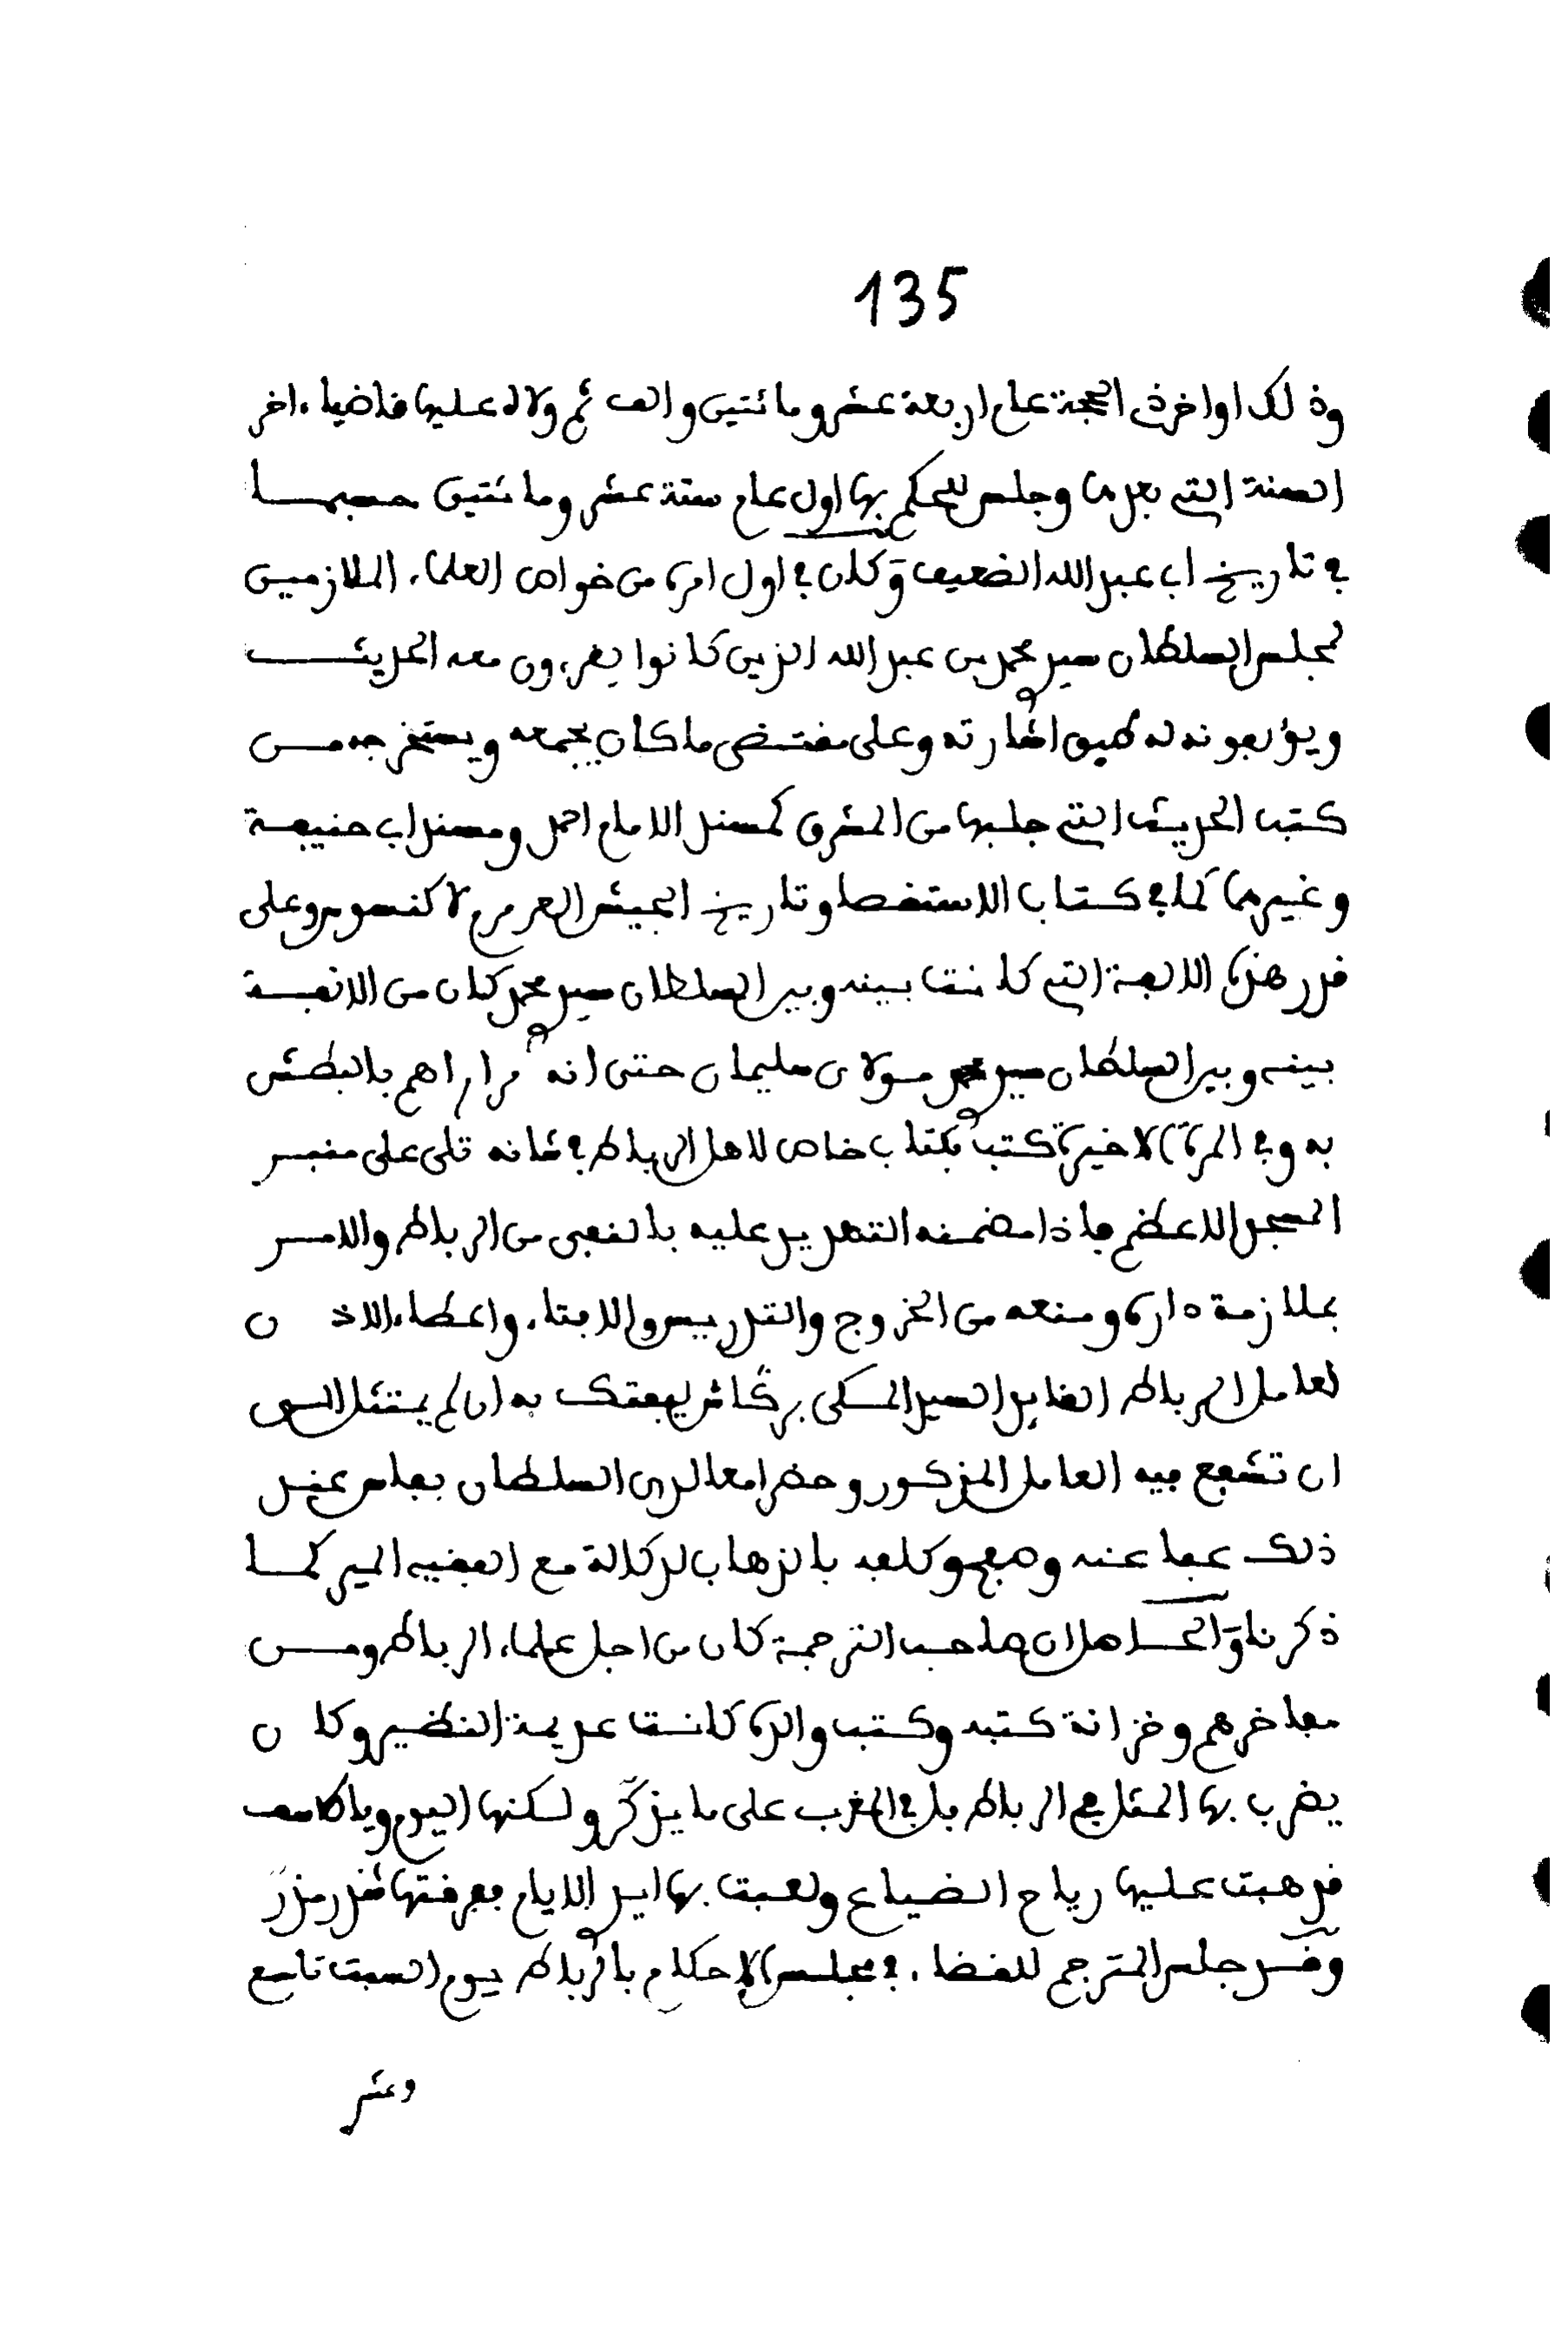 135
وذلك اواخر ذى الحجة عام اربعة عشر ومائتين والف ثم ولاه عليها قاضيا ءاخر
السنة التى بعدها وجلس للحكم بها اول عام ستة عشر ومائتين حسبما
فى تاريخ ابى عبد الله الضعيف وكان فى اول امره من خواص العلماء الملازمين
لمجلس السلطان سيدى محمد بن عبد الله الذين كانوا يقرءون معه الحديث
ويؤلفونه له طبق اشارته وعلى مقتضى ما كان يجمعه ويستخرجه من
كتب الحديث التى جلبها من المشرق كمسند الامام احمد ومسند ابى حنيفة
وغيرهما كما فى كتاب الاستقصا وتاريخ الجيش العرمرم لاكنسوس وعلى
قدر هذه الالفة التى كانت بينه وبين السلطان سيدى محمد كان من الانفة
بينه وبين السلطان مولاى سليمان حتى انه مرارا هم بالبطش
به وفى المرة الاخيرة كتب بكتاب خاص لاهل الرباط فى شانه تلى على منبر
المسجد الاعظم فاذا مضمنه التهديد عليه بالنفى من الرباط والامر
بملازمة داره ومنعه من الخروج والتدريس والافتاء واعطاء الاذن
لعامل الرباط القايد السيد المكى بركاش ليفتك به ان لم يمتثل الى
ان تشفع فيه العامل المذكور وحضرا معا لدى السلطان بفاس عند
ذلك عفا عنه وصفح وكلفه بالذهاب لدكالة مع الفقيه المير كما
ذكرنا والحاصل ان صاحب الترجمة كان من اجل علماء الرباط ومن
مفاخرهم وخزانة كتبه وكتب والده كانت عديمة النظير وكان
يضرب بها المثل فى الرباط بل فى المغرب على ما يذكر ولكنها اليوم ويا للاسف
قد هبت عليها رياح الضياع ولعبت بها ايدى الايام ففرقتها شذر مذر
وقد جلس المترجم للقضاء فى مجلس الاحكام بالرباط يوم السبت تاسع
وعشر